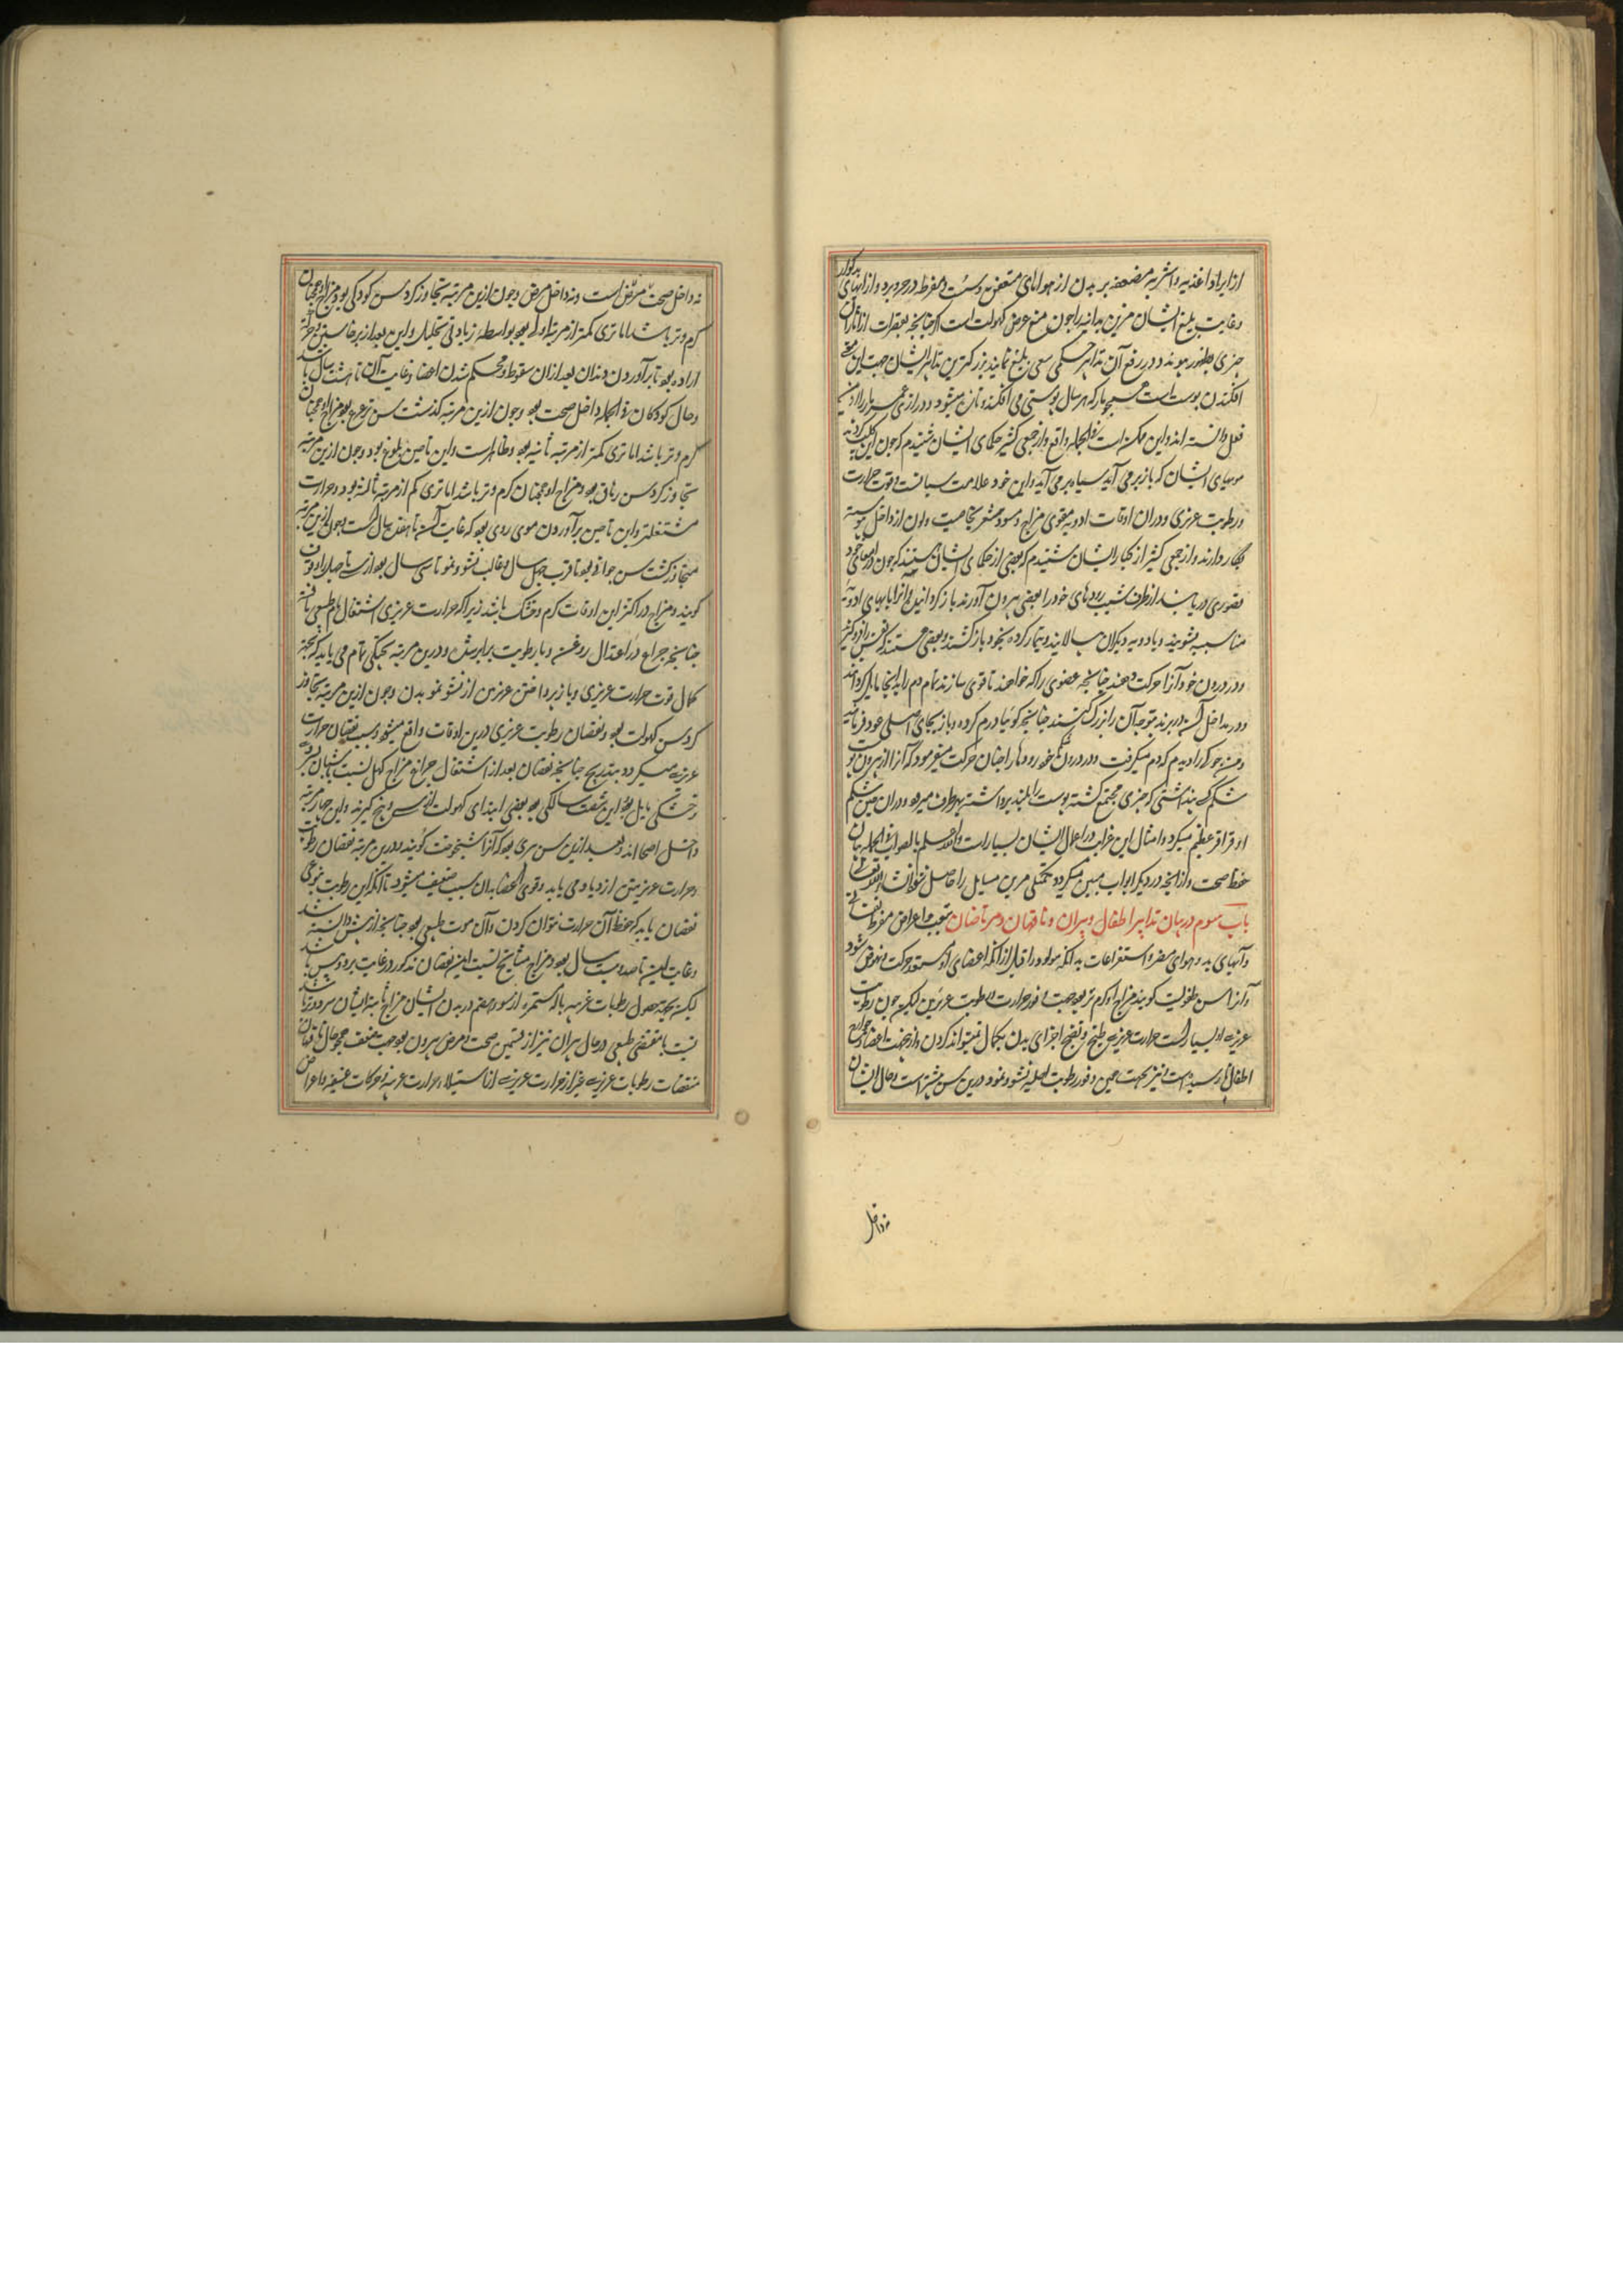 از ایراد اغذیه و اشربه مضعفه بر بدن از هواهای متعفن و مفرطه در حر و برد و از آبهای
و غایت بلیغ ایشان مرین تدابیر را چون منع عروض کهولت است اگر چنانچه
چیزی بظهور پیوندد در رفع آن تدابیر سعی بلیغ نمایند و بزرگترین تدابیر ایشان جهت این
افکندن پوست است همچو مار که هر سال پوستی می افکند و تازه میشود و درازی عمر مار را از این
فعل دانسته اند و این ممکن است و فی الجمله واقع و از جمعی کثیر حکمای ایشان شنیدم که چون این
مویهای ایشان که باز بر می آید سیاه بر می آید و این خود علامت قوت حرارت
و رطوبت غریزی و در آن اوقات ادویه مقوی مزاج و مسود شعر بخاصیت
بکار دارند و از جمعی کثیر از کبار ایشان شنیدم که بعضی از حکمای ایشان هستند که چون در
قصوری دریابند از طرف شیب رودهای خود را بعضی بیرون آورند باز گردانیده و آنرا بابهای ادویه
مناسبه بشویند و بادویه دیگر آن بیالایند و تیمار کرده بخود باز کشند و بعضی هستند که
و در درون خود آنرا حرکت دهند چنانچه عضوی را که خواهند تا قوی سازند تمام دم را بدانجا مایل گردانند
و در مداخل در برند بتوجه آن را بزرگ کنند چنانچه گوئیا ورم کرده و باز بجای اصلی عود فرمایند
و من جوکی را دیدم که دم میگرفت و در درون خود رودها را چنان حرکت میفرمود که آنرا از بیرون
شکمش پنداشتی که چیزی مجتمع گشته پوست را بلند برداشته بهر طرف میرود و در آن حین شکم
او قراقر عظیم میکرد و امثال این غرایب در اعمال ایشان بسیار است والله اعلم بالصواب فی الجمله بیان
حفظ صحت از آنچه در دیگر ابواب مبین میگردد تحقیق مرین مسایل را حاصل
باب سوم در بیان تدابیر اطفال و پیران و ناقهان و مرتاضان بتعب و اعراض مفرط
و آبهای بد و هوای مضر و استفراغات بد آنکه مولود را قبل از آنکه اعضای او مستعد حرکت و نهوض شود
و آنرا سن طفولیت گویند مزاج او گرم و تر بود جهت وفور حرارت و رطوبت غریزیین لیکن چون رطوبت
غریزیه او بسیار است حرارت غریزیه طبخ و نضج اجزای بدن بکمال نمیتواند کردن و از جهت اعضا و جوارح
اطفال نیز بجهت همین وفور رطوبت اصلیه نشو و نمو درین سن بیشتر است و حال ایشان
نه داخل
نه داخل صحت است و نه داخل مرض و چون ازین مرتبه تجاوز کرد سن کودکی بود و مزاج او همچنان
گرم و تر باشد اما تری کمتر از مرتبه اولی بود بواسطه زیادتی تحلیل و این بعد از برخاستن و
اراده بود تا بر آوردن دندان بعد از آن سقوط و محکم شدن اعضا و غایت آن تا هشت سال باشد
و حال کودکان فی الجمله داخل صحت بود و چون ازین مرتبه گذشت سن ترعرع بود و مزاج او همچنان
گرم و تر باشد اما تری کمتر از مرتبه ثانیه بود و ظاهر است و این تا حین بلوغ بود و چون ازین مرتبه
تجاوز کرد سن رهاق بود و مزاج او همچنان گرم و تر باشد اما تری کم از مرتبه ثالثه بود و حرارت
مشتعلتر و این تا حین بر آوردن موی روی بود که غایت آن تا هفده سال است و چون ازین مرتبه
متجاوز گشت سن جوانی بود تا قرب چهل سال و غالب نشو و نمو تا سی سال بود و از سی تا چهل را وقوف
گویند و مزاج در اکثر این اوقات گرم و خشک باشد زیرا که حرارت غریزی اشتعال تمام طبیعی یافته
چنانچه چراغ در اعتدال روغن و با رطوبت برابر شد و درین مرتبه پختگی تمام می یابد که بجهة
کمال قوت حرارت غریزی و باز پرداختن غریزی از نشو نمو بدن و چون ازین مرتبه تجاوز
کرد سن کهولت بود و نقصان رطوبت غریزی درین اوقات واقع میشود و سبب نقصان حرارت
غریزیه میگردد بتدریج چنانچه نقصان بعد از اشتعال چراغ مزاج کهل نسبت بشبان بسردی
و خشکی مایل بود این شصت سالگی بود بعضی ابتدای کهولت از سی و پنج گیرند و این چهار مرتبه
داخل اصحا اند و بعد ازین سن پیری بود که آنرا شیخوخت گویند و درین مرتبه نقصان رطوبت
و حرارت غریزیتین ازدیاد می یابد و قوی اعضا بدان سبب ضعیف میشود تا آنکه این رطوبت بنوعی
نقصان یابد که حفظ آن حرارت نتوان کردن و آن موت طبیعی بود چنانچه از پیش دانسته شد
و غایت این تا صد و بیست سال بود و مزاج مشایخ نسبت این نقصان مذکور در غایت برد و یبس باشد
لیکن بجهة حصول رطوبات غریبه باله مستمره از سوء هضم در بدن ایشان مزاج ایشان سرد و تر باشد
نسبت با مقتضی طبیعی و حال پیران نیز از قسمین صحت و مرض بیرون بود جهت ضعف همچو حال ناقهان
منقصات رطوبات غریزیه غیر از حرارت غریزیه استیلاء حرارت غریبه و حرکات عنیفه و اعراض